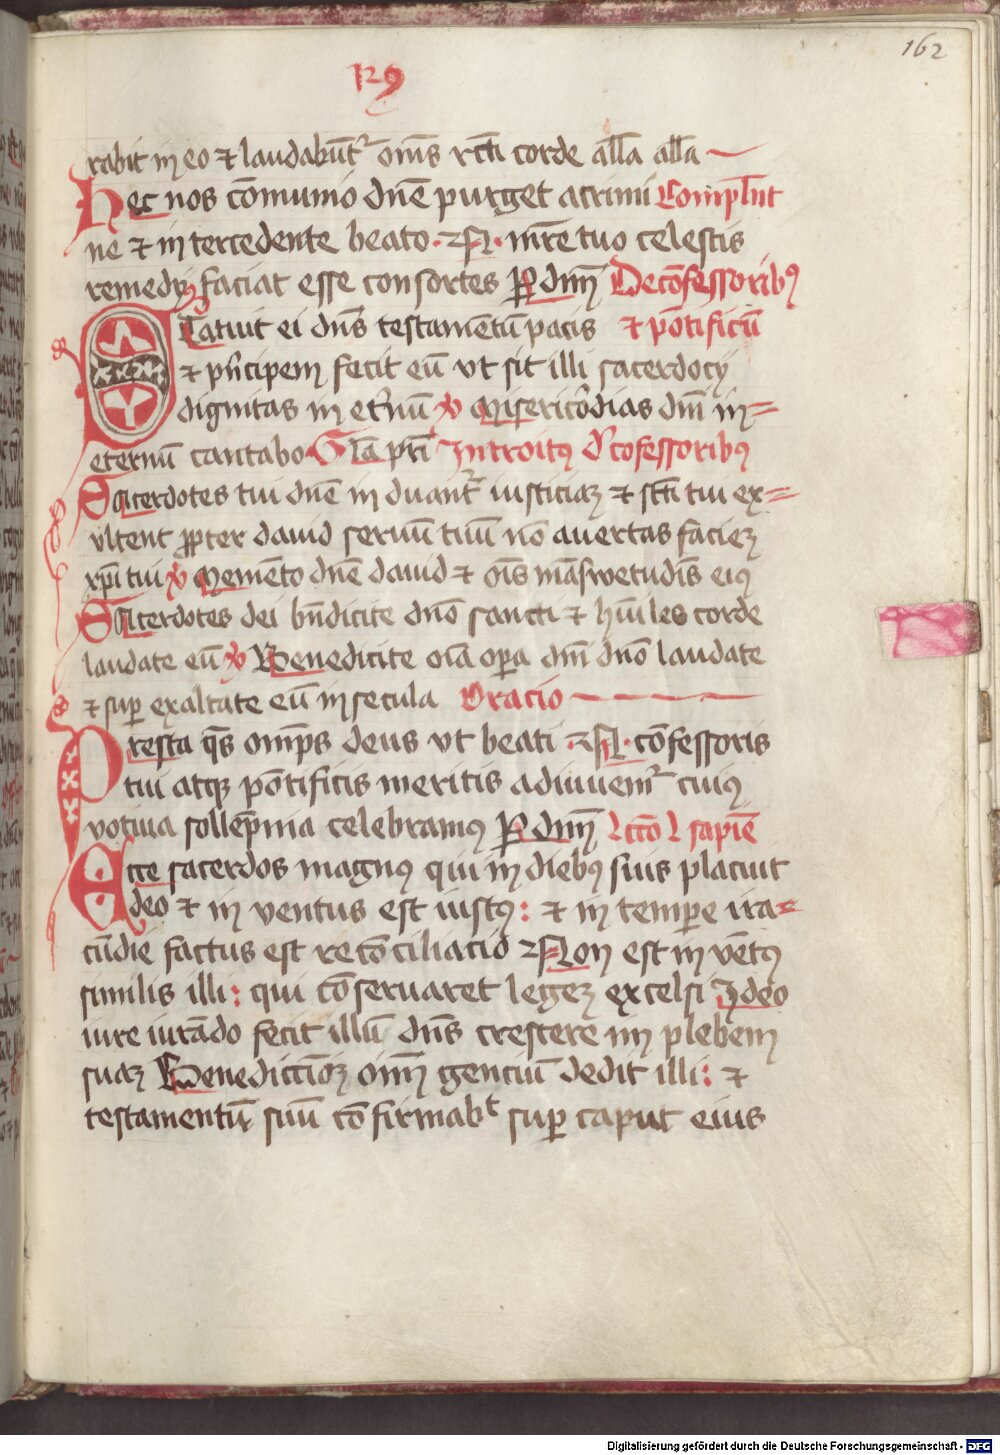 162
129
rabit in eo ⁊ laudabūt᷑ om̄s rc̄ti corde all̄a all̄a
Hec nos cōmunio dn̄e purget acrimi Complēnt
ne ⁊ in tercedente beato · ⁊ N · mr̄e tuo celestis
remedy faciat esse consortes ꝑ dnm̄ De cōfessoribꝰ
Statuit ei dn̄s testamentū pacis ⁊ pōtificū
⁊ pn̄cipem fecit eū vt sit illi sacerdocy
dignitas in et̄nū ℣ Misericōdias dn̄i in=
eternū cantabo Gl̄a pr̄i Introitꝰ d̄ cōfessoribꝰ
Sacerdotes tui dn̄e in duant᷑ iusticiaꝫ ⁊ sc̄ti tui ex=
ultent ꝓpter dauid seruū tuū nō auertas facieꝫ
xp̄i tui ℣ Memēto dn̄e dauid ⁊ oīs māswetudīs eiꝰ
Sacerdotes dei bn̄dicite dn̄o sancti ⁊ hūiles corde
laudate eū ℣ Benedicite oīa oꝑa dn̄i dn̄o laudate
⁊ suꝑ exaltate eū in secula Oracio
Presta qs̄ omp̄s deus vt beati · ⁊ N · cōfessoris
tui atqꝫ pōtificis meritis adiuuem᷑ cuiꝰ
votiua sollēpnia celebramꝰ ꝑ dnm̄ Lcc̄o l sapiē
Ecce sacerdos magnꝰ qui in diebꝰ suis placuit
deo ⁊ in ventus est iustꝰ : ⁊ in temꝑe ira=
cūdie factus est recōciliacio ⁊ Non est in vētꝰ
similis illi : qui cōseruaret legeꝫ excelsi Ideo
iure iurādo fecit illū dn̄s crescere in plebem
suaꝫ Benediccioꝫ oīm genciū dedit illi : ⁊
testamentū suū cōfirmabt suꝑ caput eius
Digitalisierung gefördert durch die Deutsche Forschungsgemeinschaft - DFG